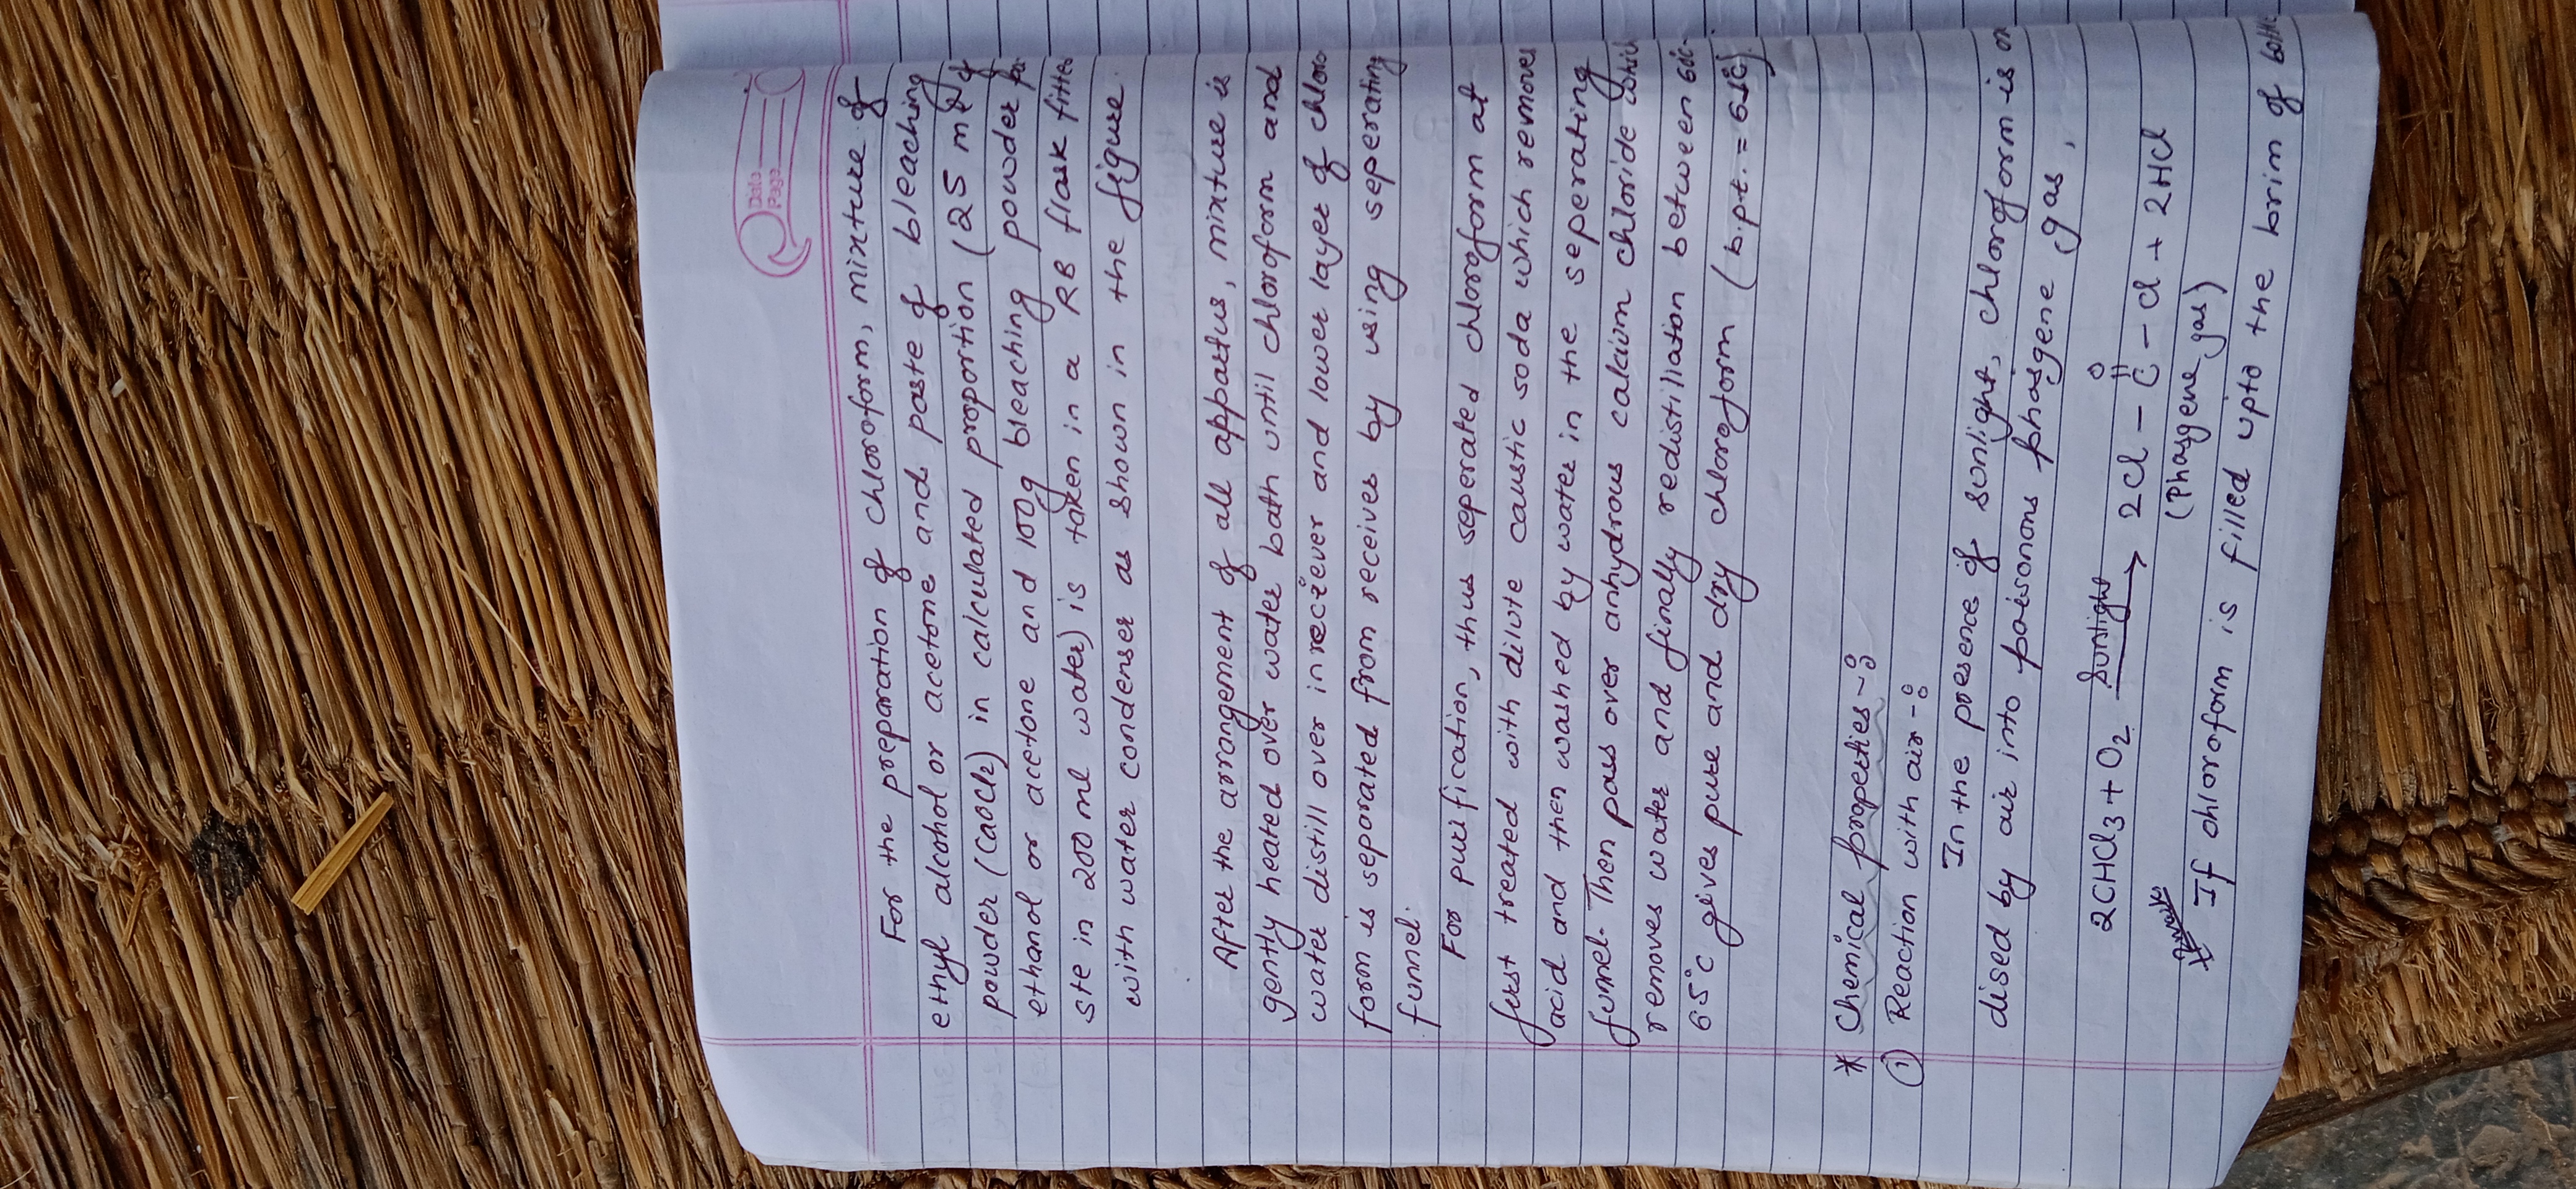 Date
Page
For the preparation of chloroform, mixture of
ethyl alcohol or acetone and paste of bleaching
powder (CaOCl2) in calculated proportion (25 ml of
ethanol or acetone and 100g bleaching powder pa
ste in 200 ml water) is taken in a RB flask fitted
with water condenser as shown in the figure.
After the arrangement of all appartus, mixture is
gently heated over water bath until chloroform and
water distill over in reciever and lower layer of chloro
form is separated from receives by using seperating
funnel.
For purification, thus seperated chloroform at
first treated with dilute caustic soda which removes
acid and then washed by water in the seperating
funnel. Then pass over anhydrous calcium chloride which
removes water and finally redistillation between
65°C gives pure and dry chloroform (b.pt. = 61°C)
* Chemical properties -:
① Reaction with air -:
In the presence of sonlight, chloroform is
dised by air into poisonons phasgene gas,
O
2CHCl3 + O2 Sunlight → 2Cl - C - Cl + 2HCl
(Phasgene gas)
If chloroform is filled upto the brim of bottle